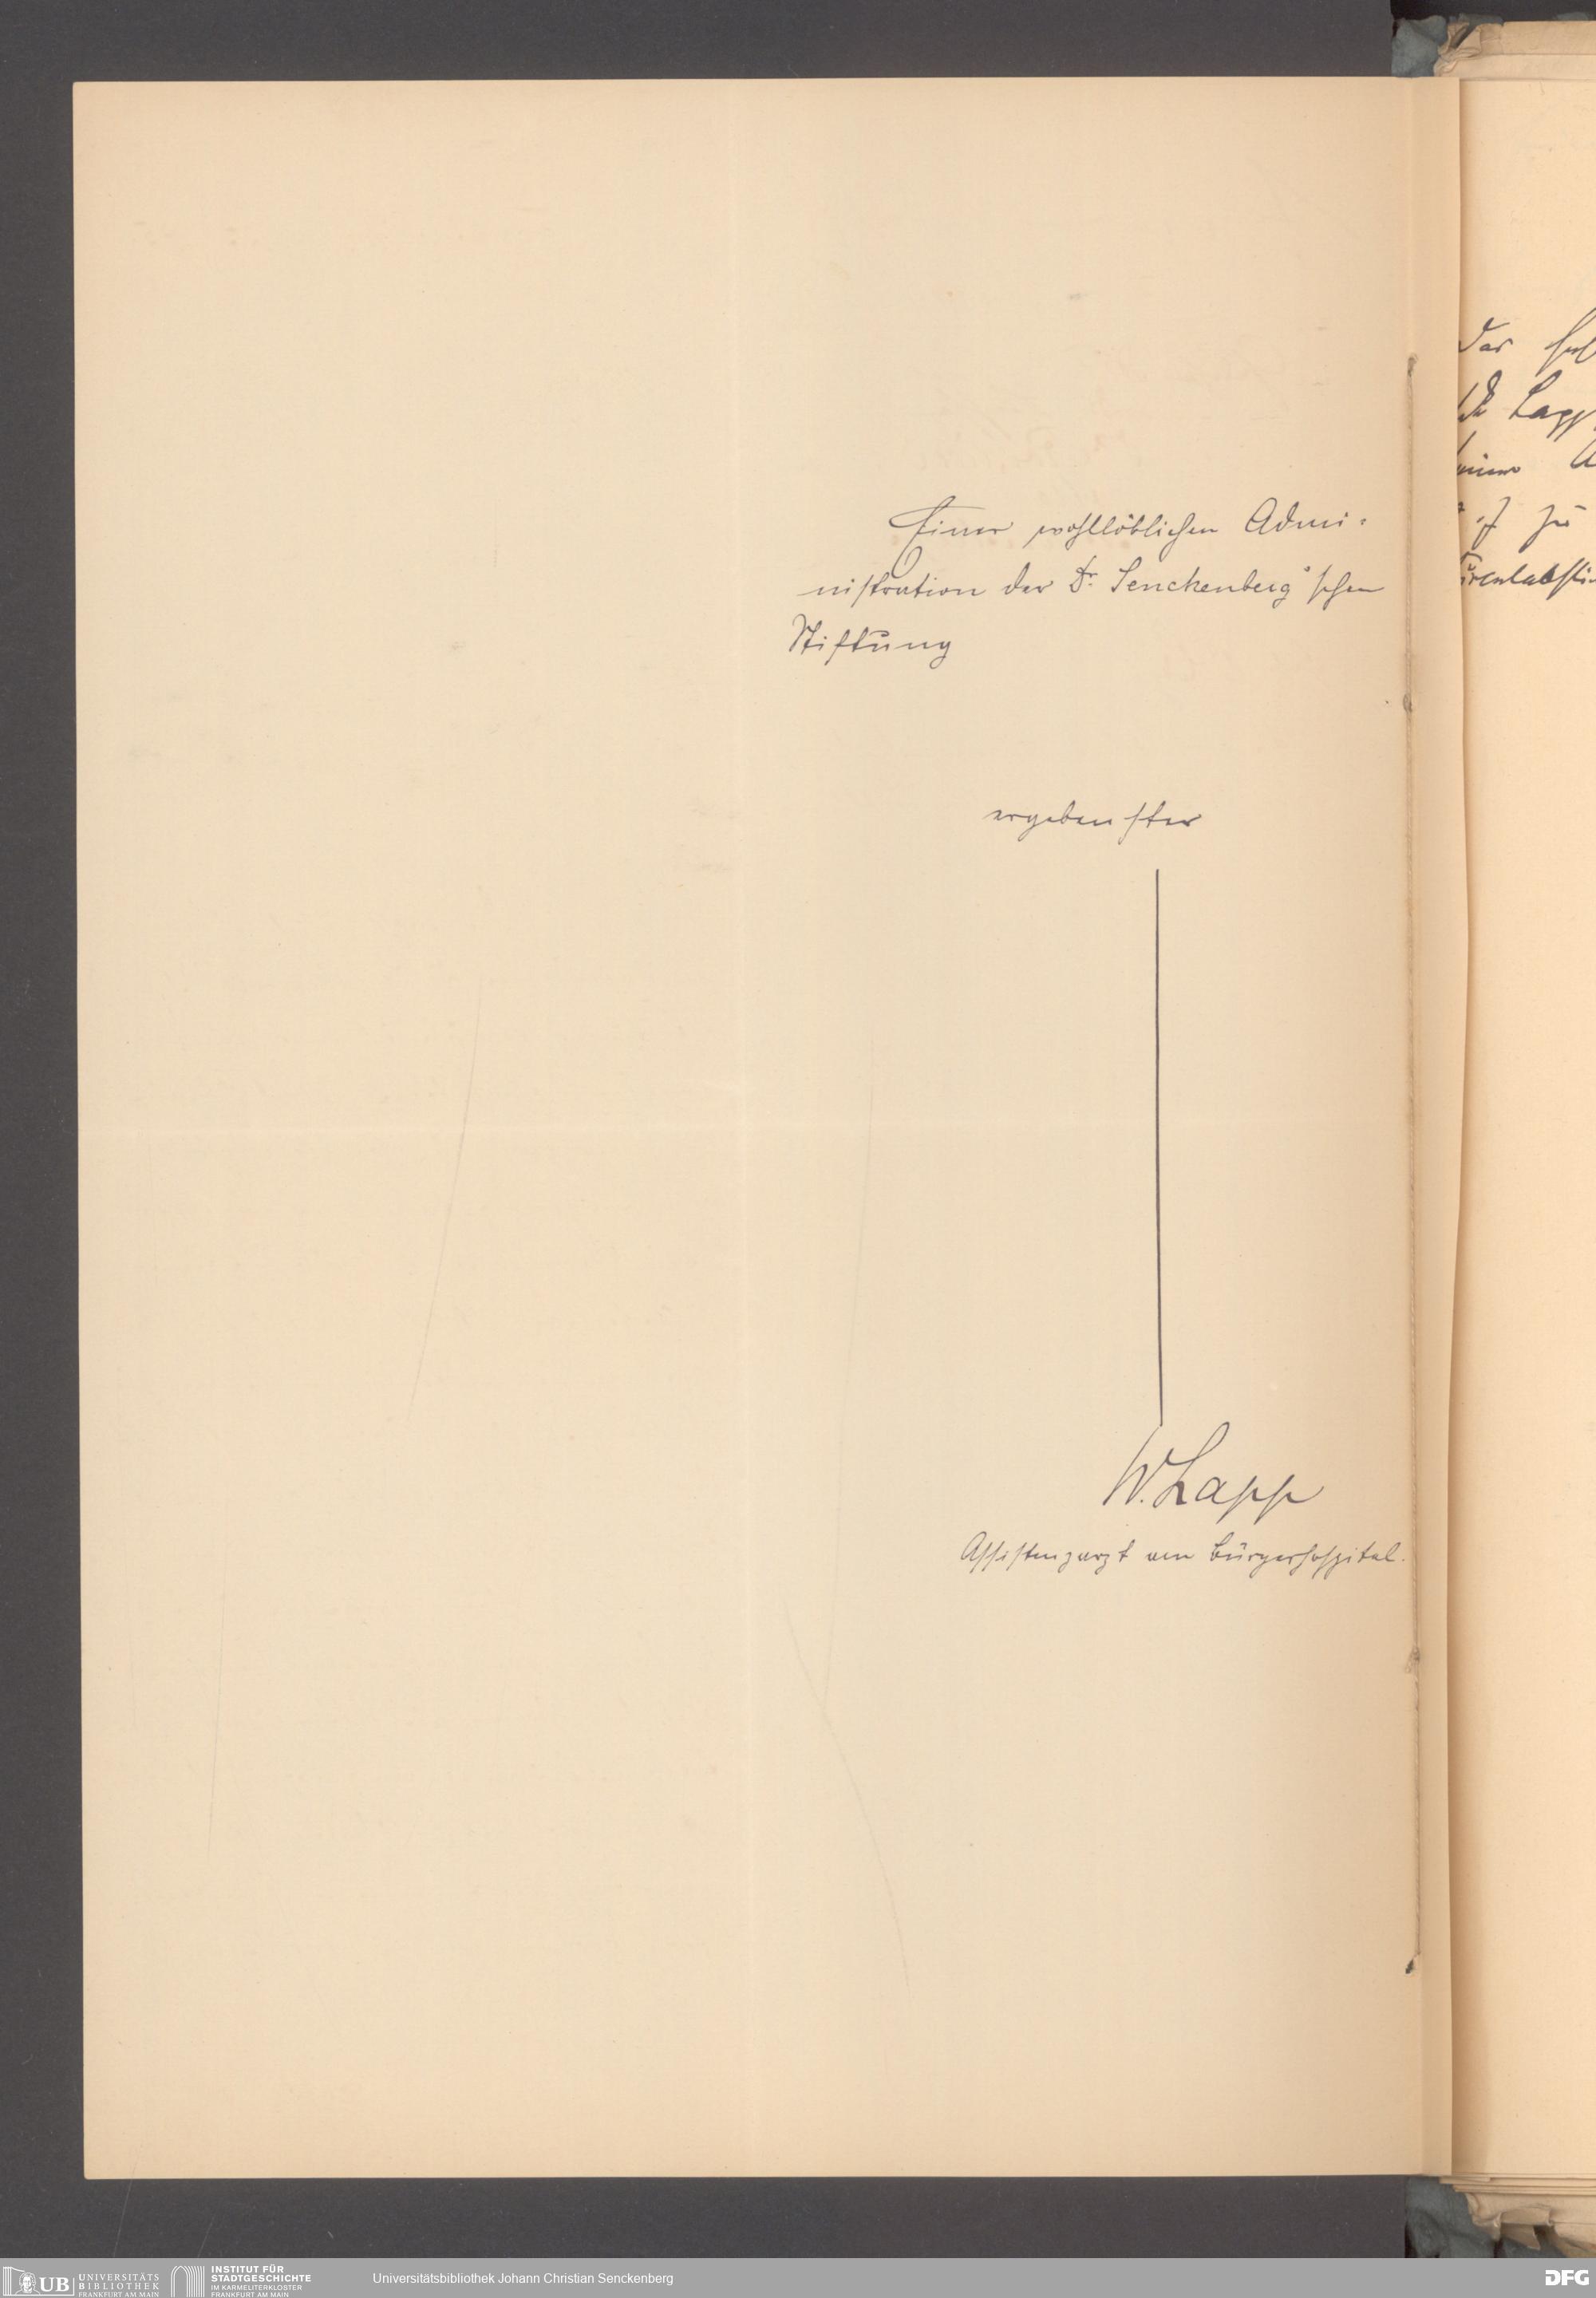 Einer wohllöblichen Admi-
nistration der Dr. Senckenberg'schen
Stiftung
ergebenster
W. Lapp
Assistenzarzt am Bürgerhospital.
Das
Lapp
zu
UB UNIVERSITÄTS
BIBLIOTHEK
FRANKFURT AM MAIN
INSTITUT FÜR
STADTGESCHICHTE
IM KARMELITERKLOSTER
FRANKFURT AM MAIN
Universitätsbibliothek Johann Christian Senckenberg
DFG